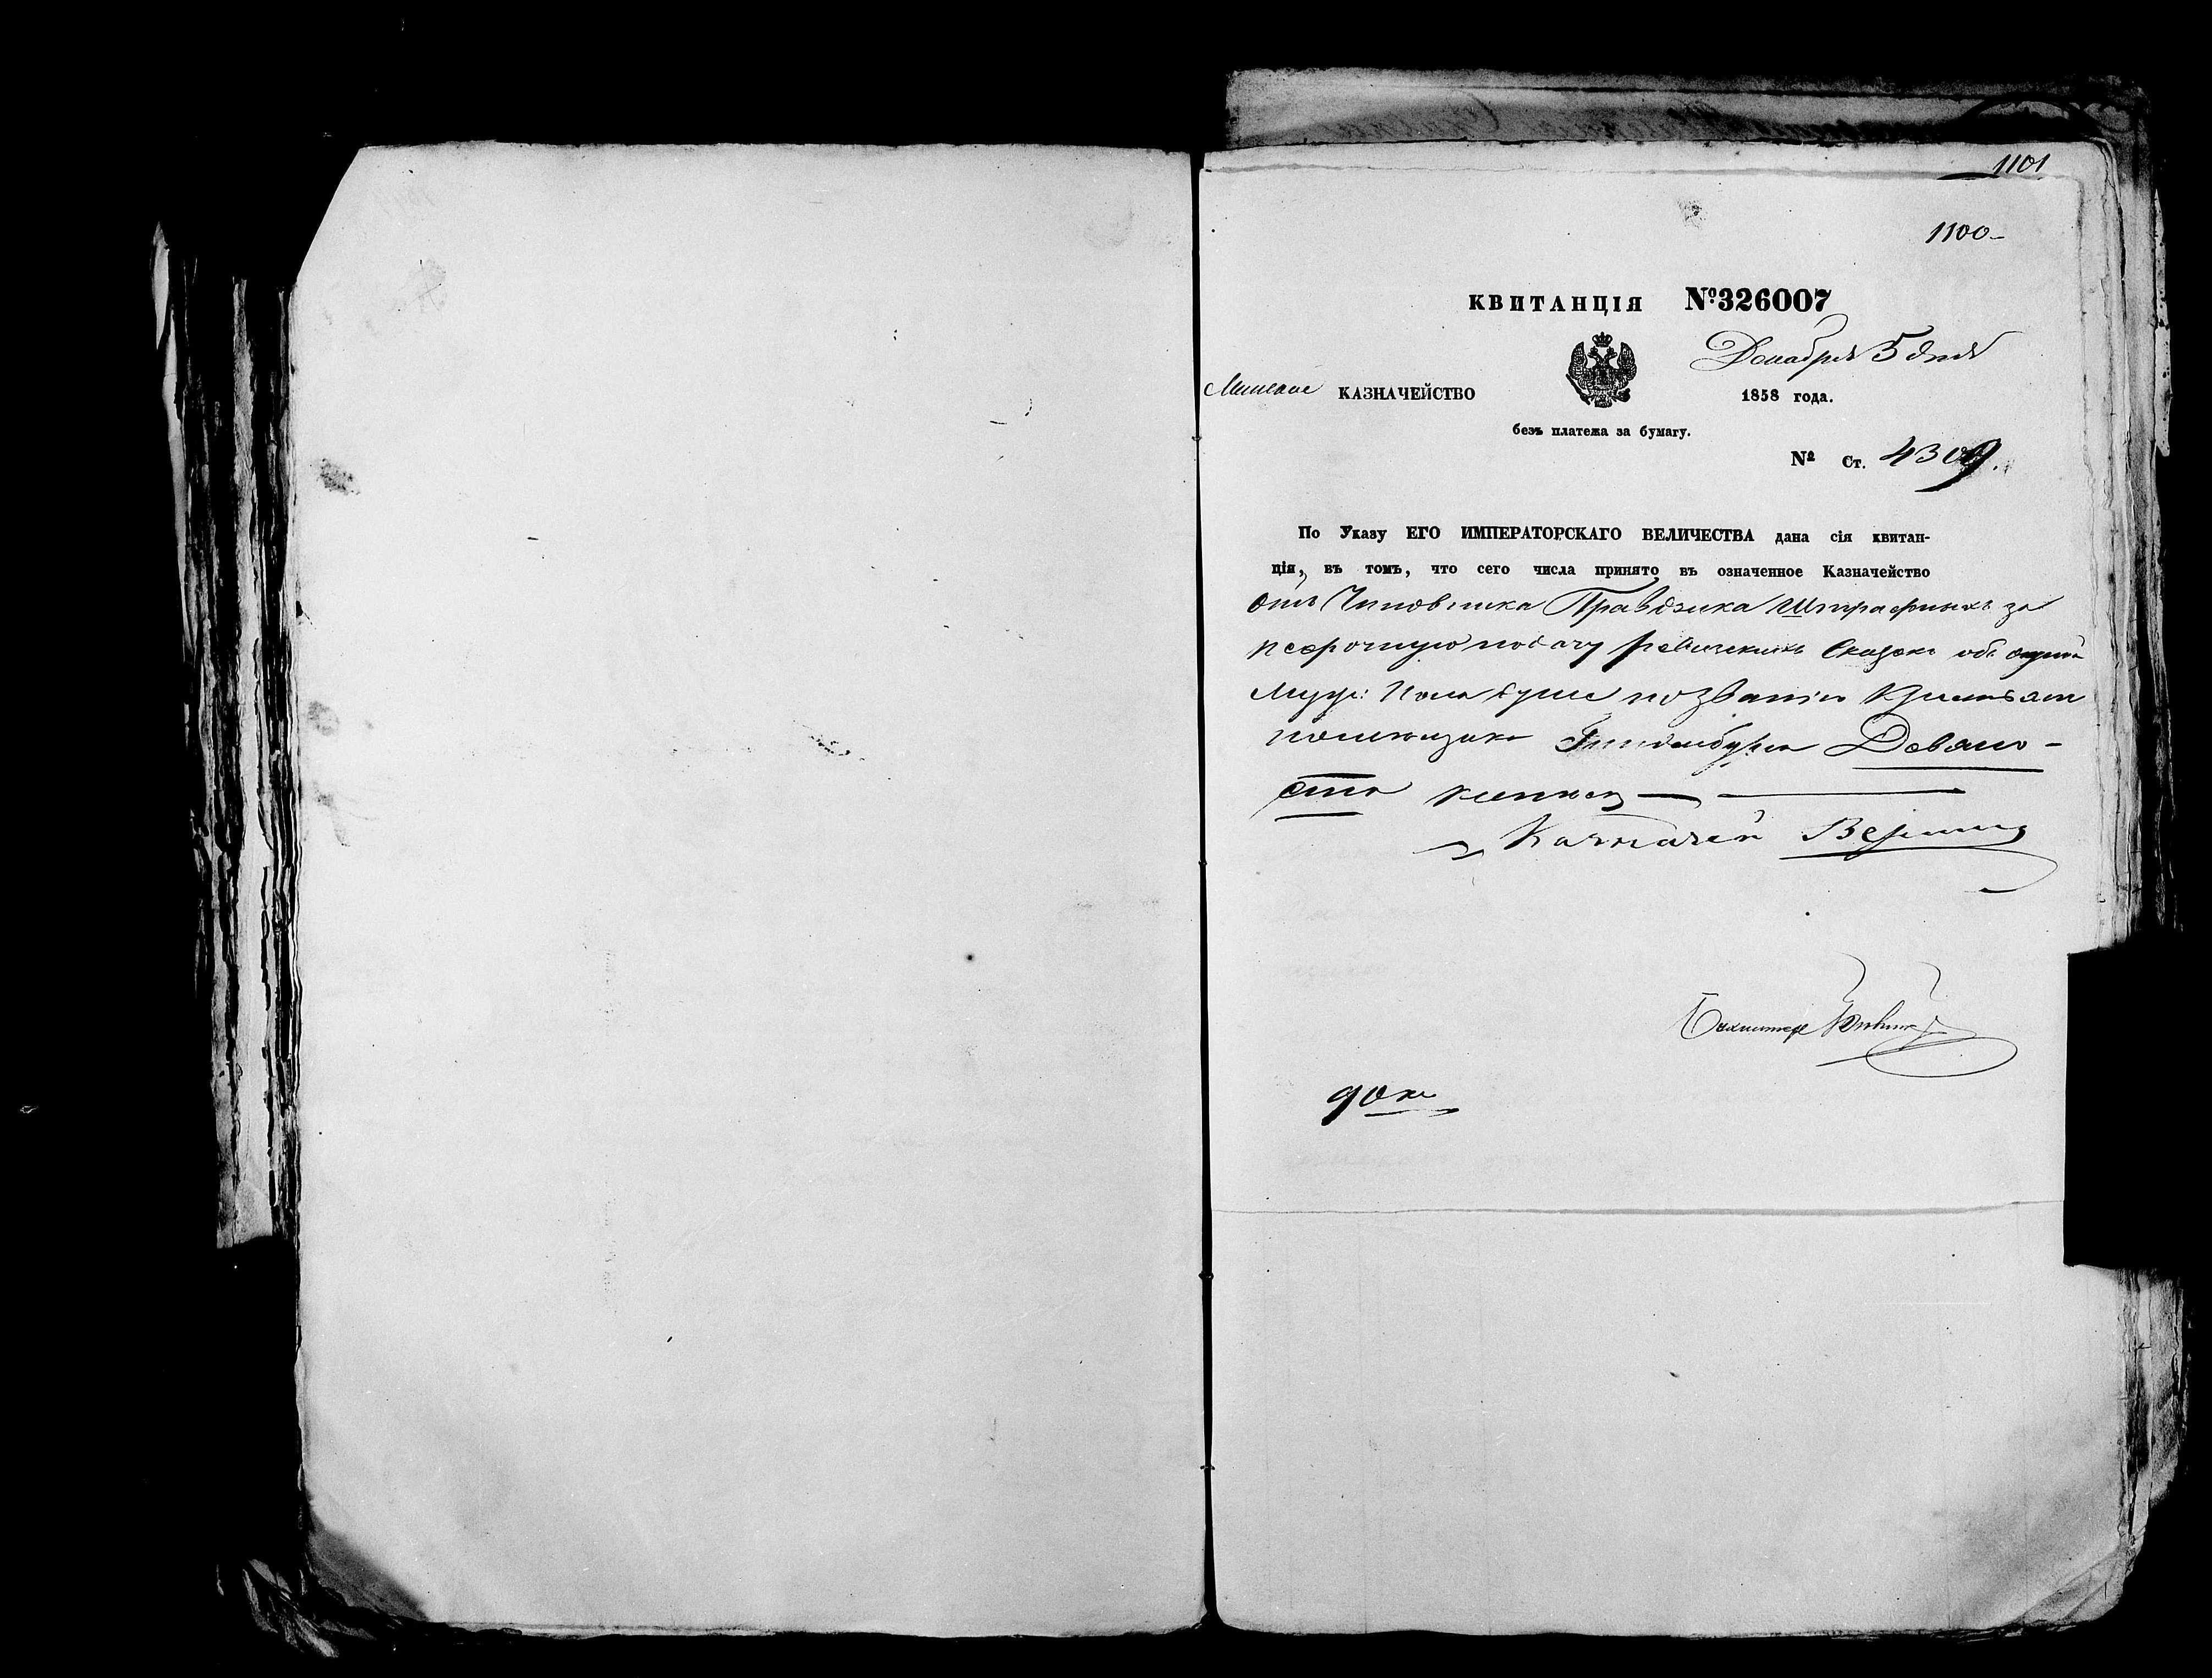 1101
1100-
КВИТАНЦІЯ №326007
Декабря 5 дня
Минское КАЗНАЧЕЙСТВО
1858 года.
безъ платежа за бумагу.
№ Ст. 4309.
По Указу ЕГО ИМПЕРАТОРСКАГО ВЕЛИЧЕСТВА дана сія квитан-
ція, въ томъ, что сего числа принято въ означенное Казначейство
отъ Чиновника Правдзика Штрафныхъ за
несрочную подачу ревизскихъ Сказокъ объ одной
Муж: Пола душе по званію
помещика Девяно-
сто копеекъ
Казначей
Бухгалтеръ
90 ко